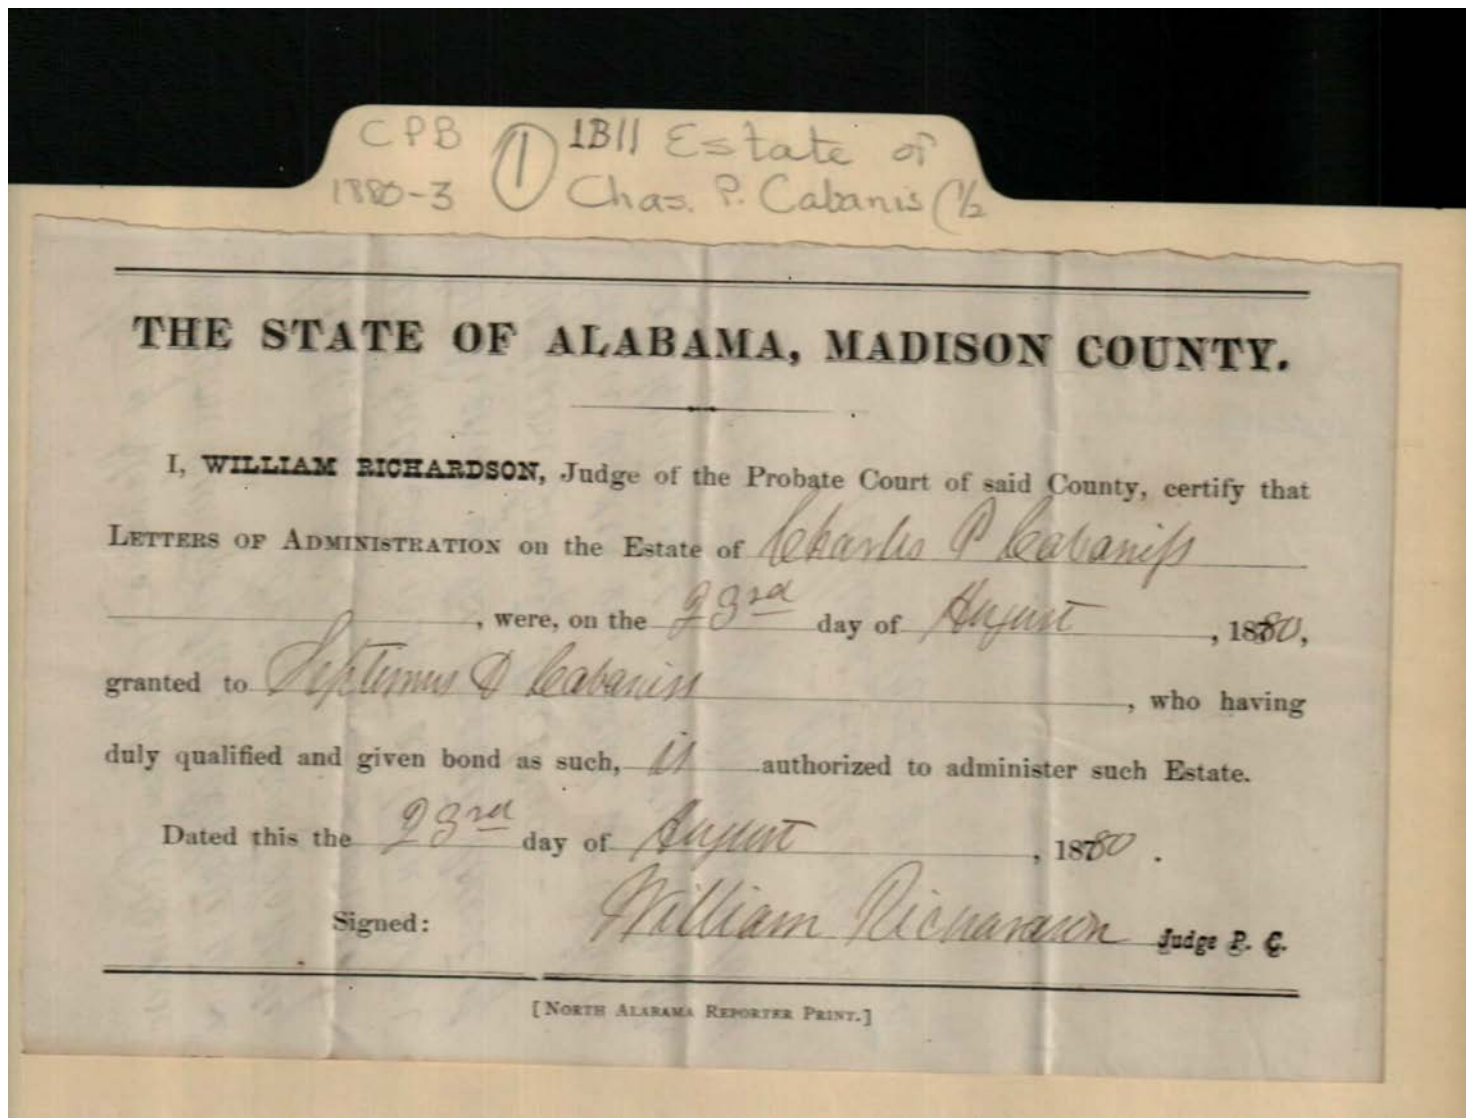 CPB
1880-3
1
1B11 Estate of
Chas. P. Cabanis (1/2
THE STATE OF ALABAMA, MADISON COUNTY.
I, WILLIAM RICHARDSON, Judge of the Probate Court of said County, certify that
LETTERS OF ADMINISTRATION on the Estate of Charles P Cabaniss
, were, on the 23rd day of August, 1880,
granted to Septimus D Cabaniss, who having
duly qualified and given bond as such, is authorized to administer such Estate.
Dated this the 23rd day of August, 1880.
Signed: William Richardson Judge P. C.
[NORTH ALABAMA REPORTER PRINT.]